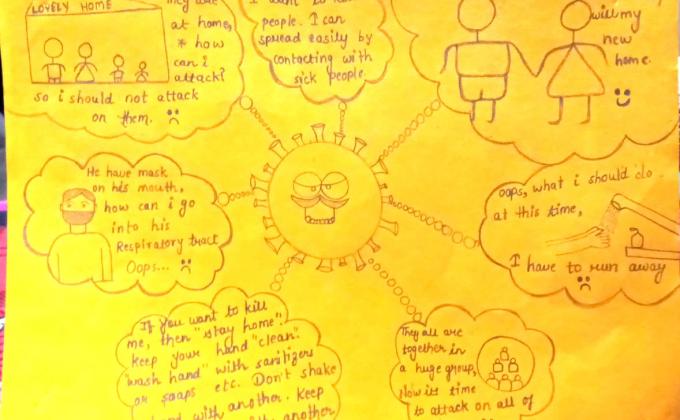 LOVELY HOME
they are
at home,
* how
can i
attack?
so i should not attack
on them.
people. I can
spread easily by
contacting with
sick people.
will my
new
home.
He have mask
on his mouth,
how can i go
into his
Respiratory tract
Oops...
oops, what i should do
at this time,
I have to run away
If you want to kill
me, then "stay home".
Keep your hand "clean".
"wash hand" with sanitizers
or soaps etc. Don't shake
hand with another. Keep
another
They all are
together in
a huge group,
Now its time
to attack on all of